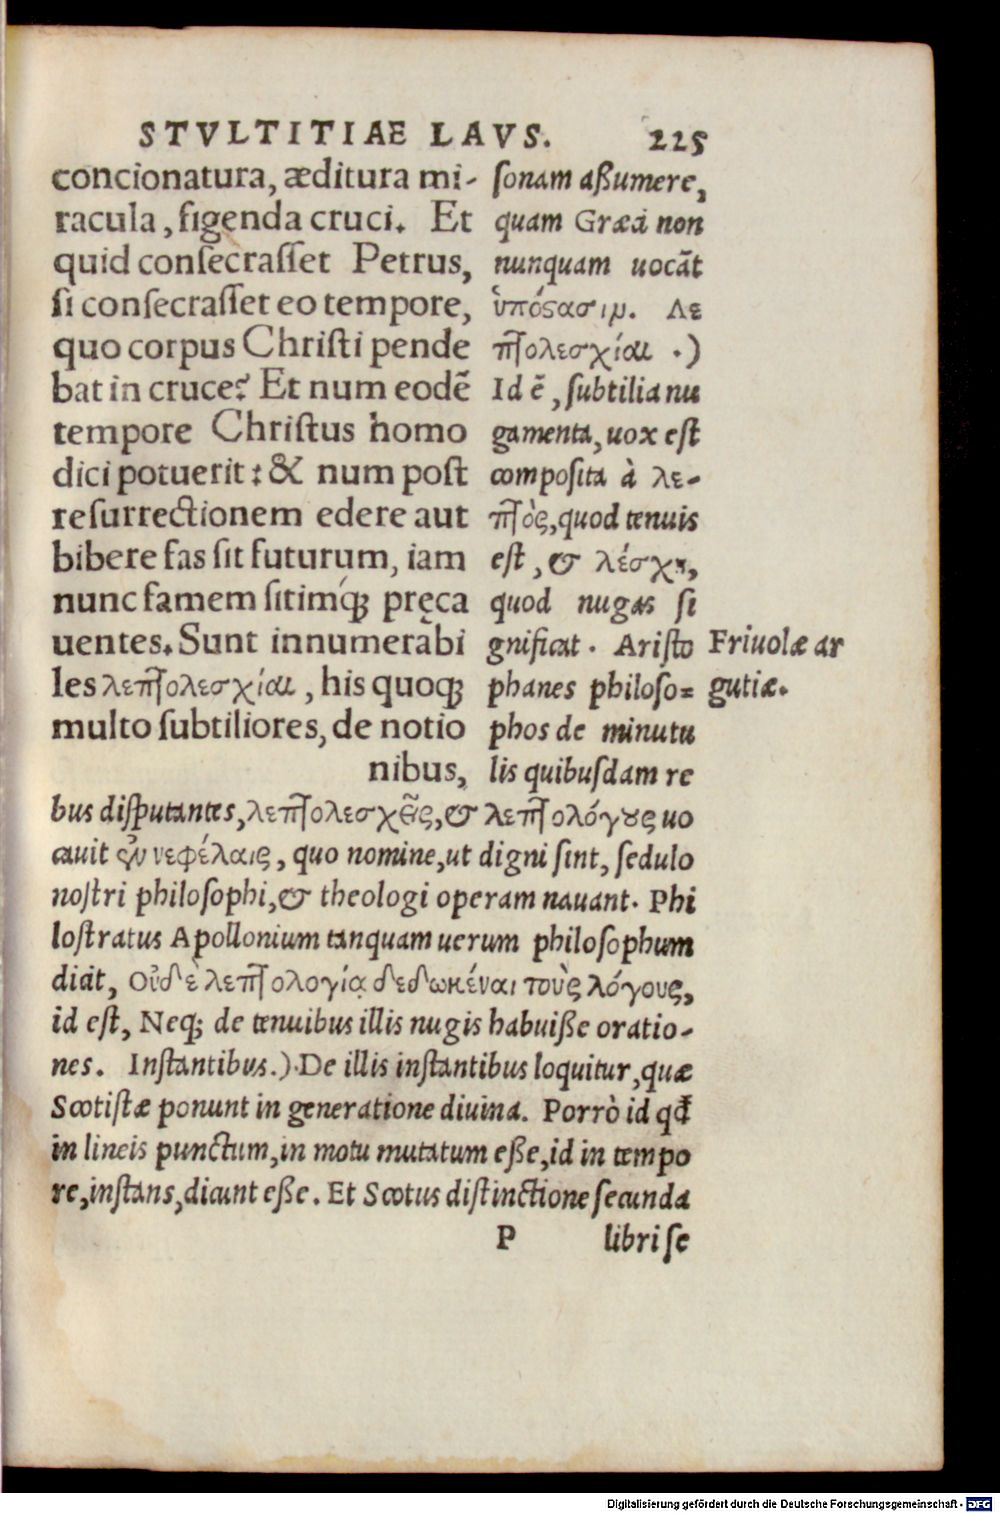 STVLTITIAE LAVS. 225
concionatura, æditura mi-
racula, figenda cruci. Et
quid consecrasset Petrus,
si consecrasset eo tempore,
quo corpus Christi pende
bat in cruce? Et num eodẽ
tempore Christus homo
dici potuerit: & num post
resurrectionem edere aut
bibere fas sit futurum, iam
nunc famem sitimq́; pręca
uentes. Sunt innumerabi
les λεπτολεσχίαι, his quoq;
multo subtiliores, de notio
nibus,
sonam aßumere,
quam Græci non
nunquam uocãt
ὑπόςασιμ. Λε
πτολεσχίαι .)
Id ẽ, subtilia nu
gamenta, uox est
composita à λε-
πτὸς, quod tenuis
est, & λέσχη,
quod nugas si
gnificat. Aristo
phanes philoso=
phos de minutu
lis quibusdam re
Friuolæ ar
gutiæ.
bus disputantes, λεπτολεσχȣ̃ς, & λεπτολόγȣς uo
cauit ἐν νεφέλαις, quo nomine, ut digni sint, sedulo
nostri philosophi, & theologi operam nauant. Phi
lostratus Apollonium tanquam uerum philosophum
dicit, Οὐδὲ λεπτολογίᾳ δεδωκέναι τοὺς λόγους,
id est, Neq; de tenuibus illis nugis habuiße oratio-
nes. Instantibus.) De illis instantibus loquitur, quæ
Scotistæ ponunt in generatione diuina. Porrò id qđ
in lineis punctum, in motu mutatum eße, id in tempo
re, instans, dicunt eße. Et Scotus distinctione secunda
P libri se
Digitalisierung gefördert durch die Deutsche Forschungsgemeinschaft - DFG